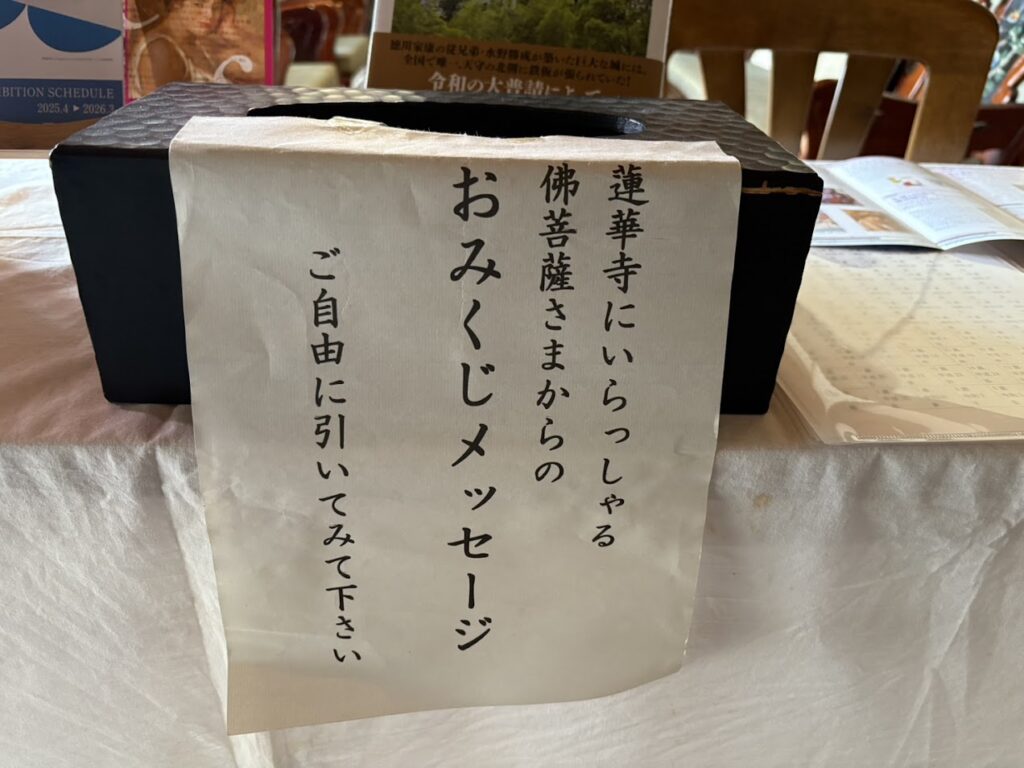 蓮華寺にいらっしゃる
佛菩薩さまからの
おみくじメッセージ
ご自由に引いてみて下さい
徳川家康の従兄弟・水野勝成が築いた巨大な城には、
全国で唯一、天守の北側に鉄板が張られていた!
令和の大普請によって
IBITION SCHEDULE
2025.4 ▶ 2026.3